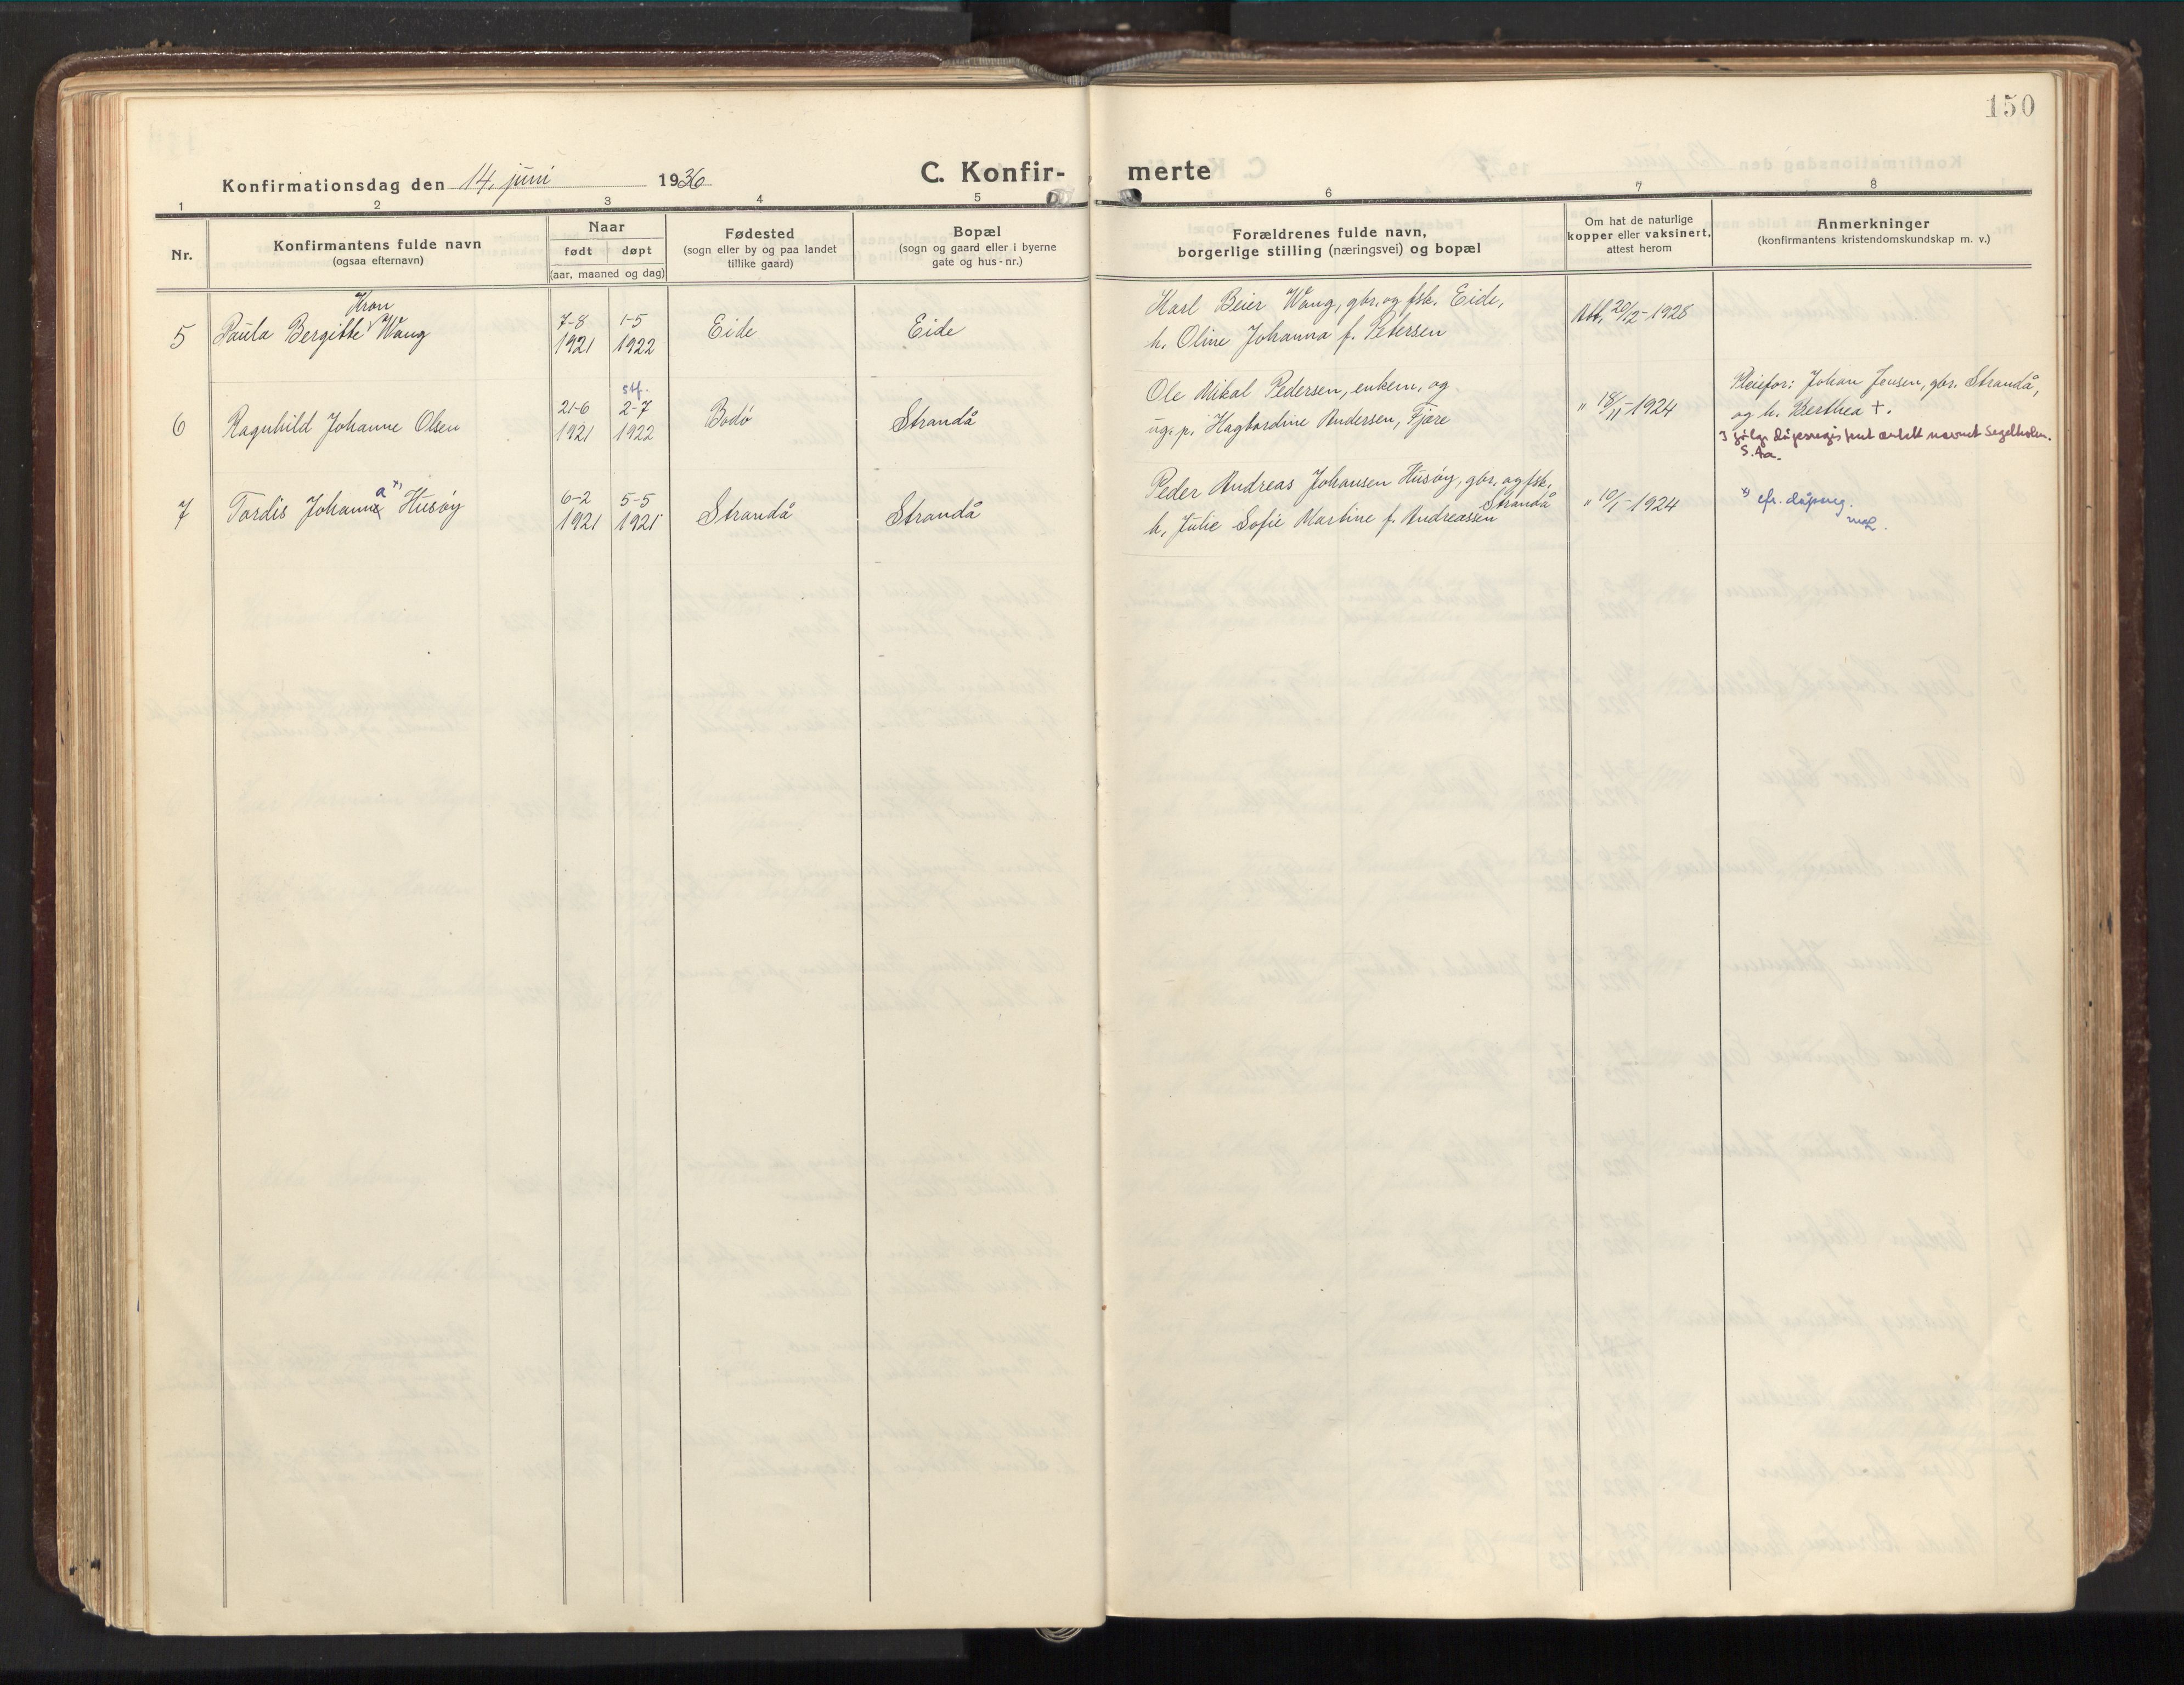 150
Konfirmationsdag den 14. juni 1936
C. Konfir-
merte
1 2 3 4 5 6 7 8
Nr.
Konfirmantens fulde navn
(ogsaa efternavn)
Naar
født døpt
(aar, maaned og dag)
Fødested
(sogn eller by og paa landet
tillike gaard)
Bopæl
(sogn og gaard eller i byerne
gate og hus-nr.)
Forældrenes fulde navn,
borgerlige stilling (næringsvei) og bopæl
Om hat de naturlige
kopper eller vaksinert,
attest herom
Anmerkninger
(konfirmantens kristendomskundskap m. v.)
Kran
5 Paula Bergitte Wang
7-8 1-5
1921 1922
Eide Eide
Karl Beier Wang, gbr. og fsk. Eide,
h. Oline Johanna f. Petersen
Att. 20/12-1928
6 Ragnhild Johanne Olsen
stf.
21-6 2-7
1921 1922
Bodø Strandå
Ole Mikal Pedersen, enkem, og
ug. p. Hagbardine Andersen, Fjære
" 18/11-1924
Pleiefor: Johan Jensen, gbr. Strandå,
og h. Berthea +.
I følge dåpsregistret antatt navnet Segelholm.
S. Aa.
a x)
7 Tordis Johanne Husøy
6-2 5-5
1921 1921
Strandå Strandå
Peder Andreas Johansen Husøy, gbr. og fsk.,
Strandå
h. Julie Sofie Martine f. Andreassen
" 10/1-1924
x) cfr. dåpsreg.